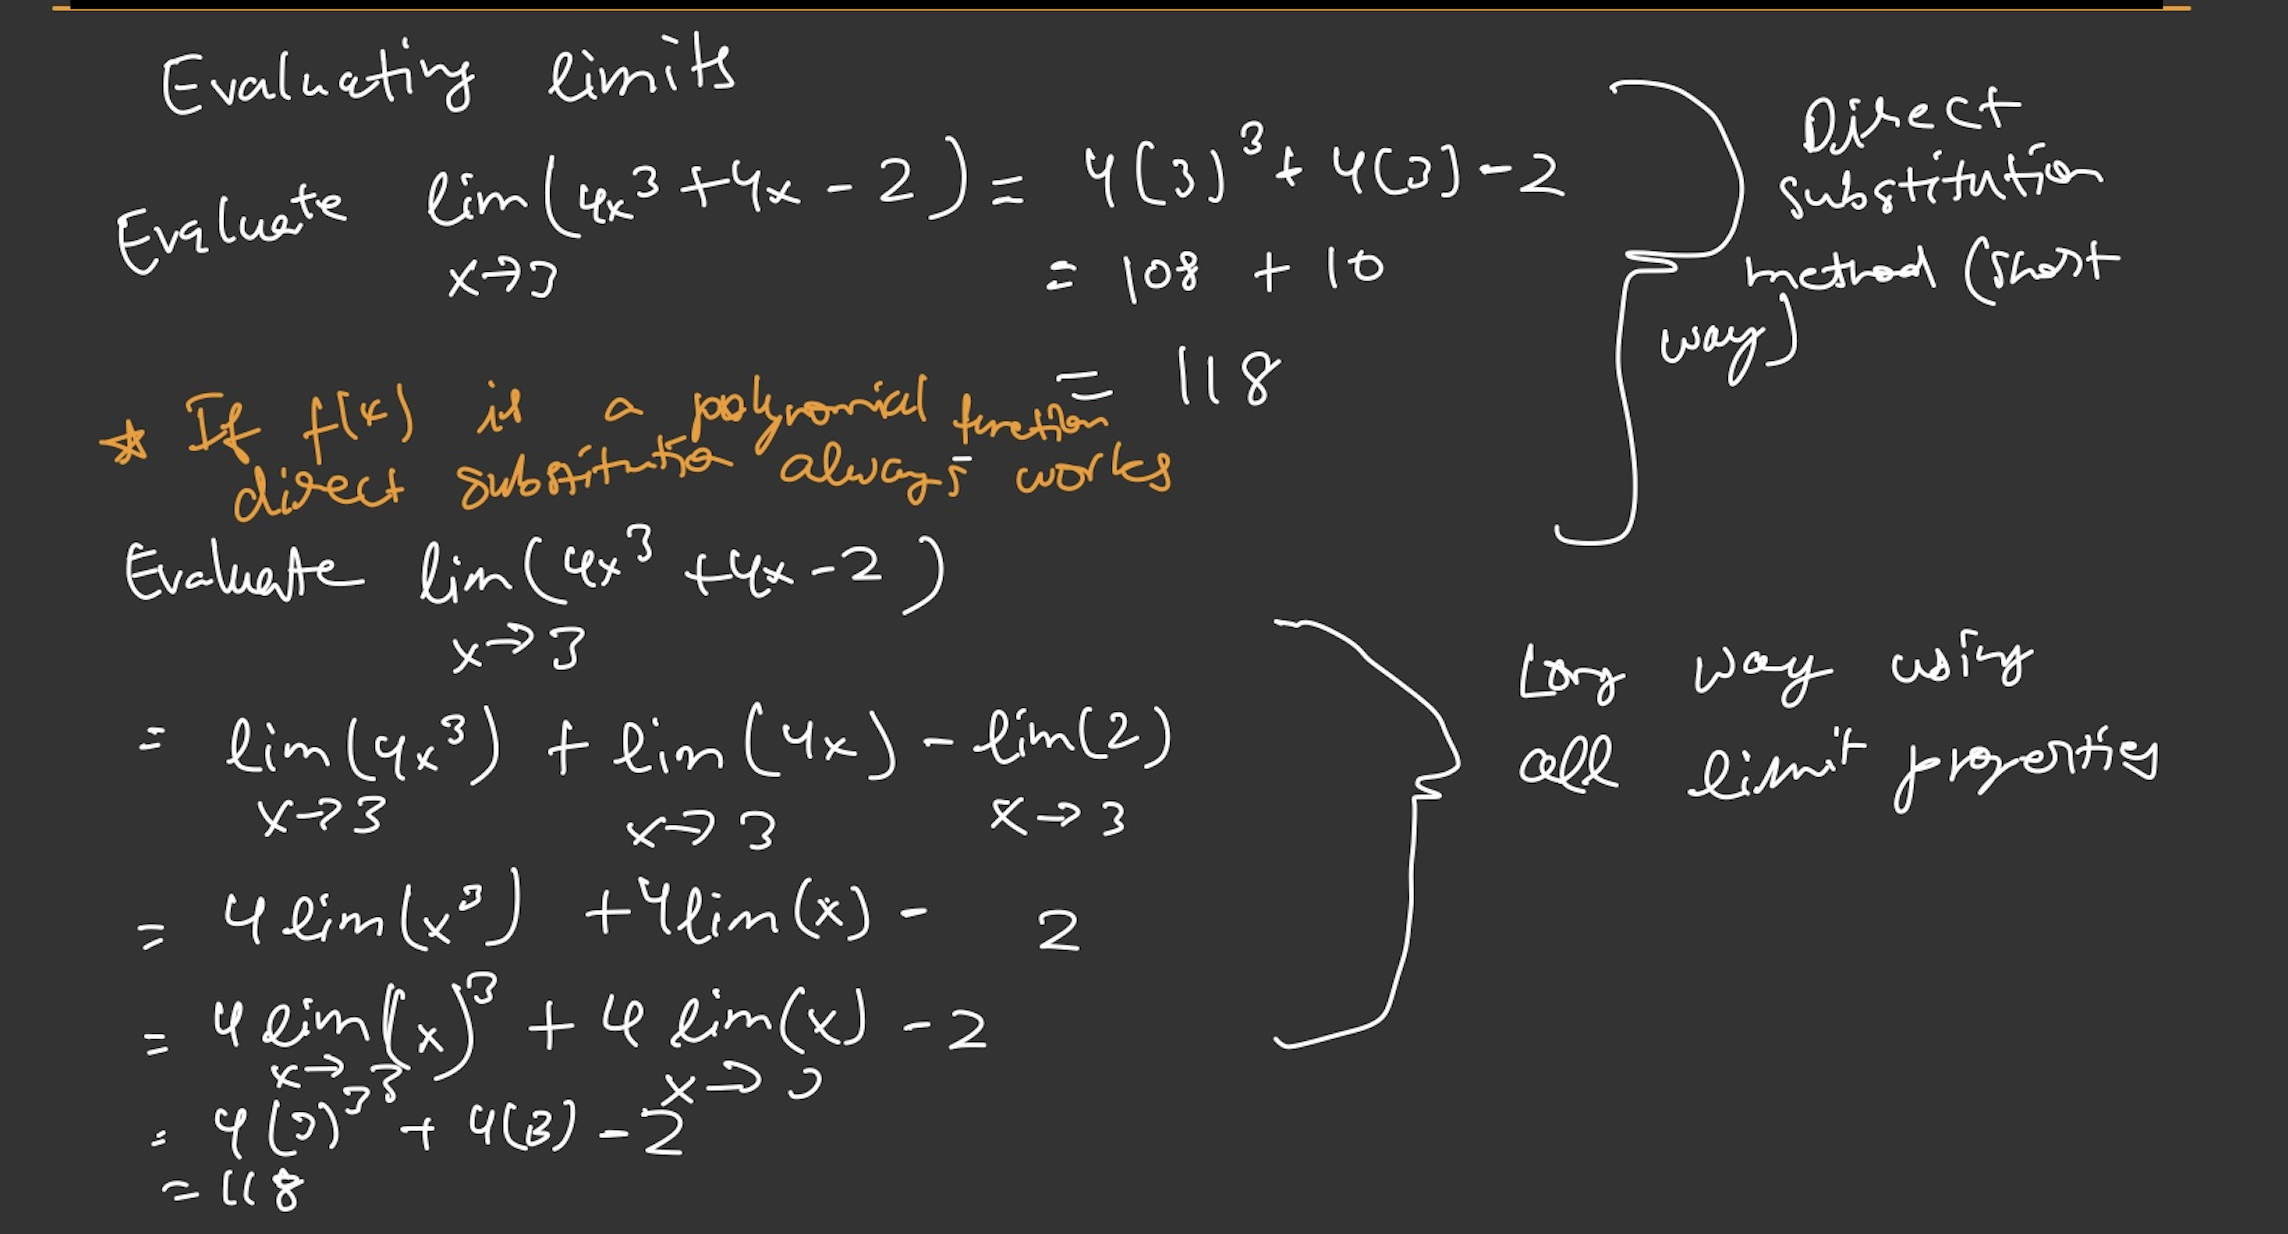 Evaluating limits
Evaluate lim (4x³ + 4x - 2) = 4(3)³ + 4(3) - 2
x→3
= 108 + 10
= 118
Direct
substitution
method (short
way)
☆ If f(x) is a polynomial function
direct substitutio always works
Evaluate lim (4x³ + 4x - 2)
x→3
= lim (4x³) + lim (4x) - lim (2)
x→3 x→3 x→3
= 4 lim (x³) + 4 lim (x) - 2
= 4 lim (x)³ + 4 lim (x) - 2
x→3 x→3
= 4(3)³ + 4(3) - 2
= 118
Long way using
all limit properties